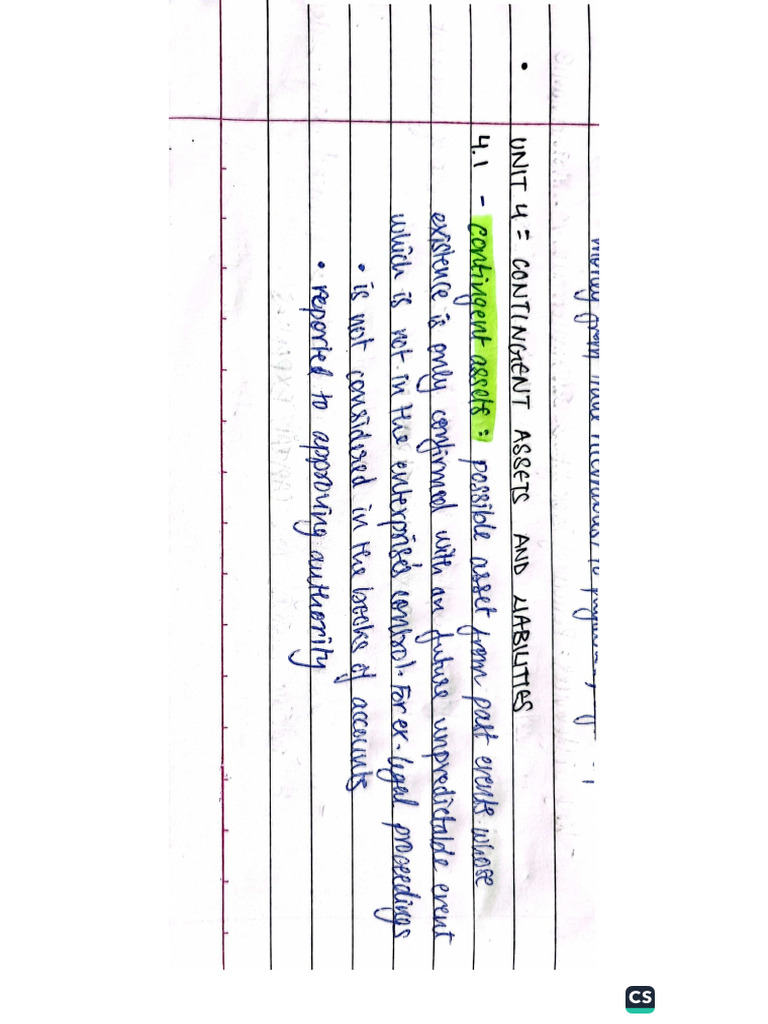 UNIT 4 = CONTINGENT ASSETS AND LIABILITIES
4.1 - contingent assets: possible asset from past events whose
existence is only confirmed with an future unpredictable event
which is not in the enterprise's control. For ex. legal proceedings
• is not considered in the books of accounts
• reported to approving authority
CS